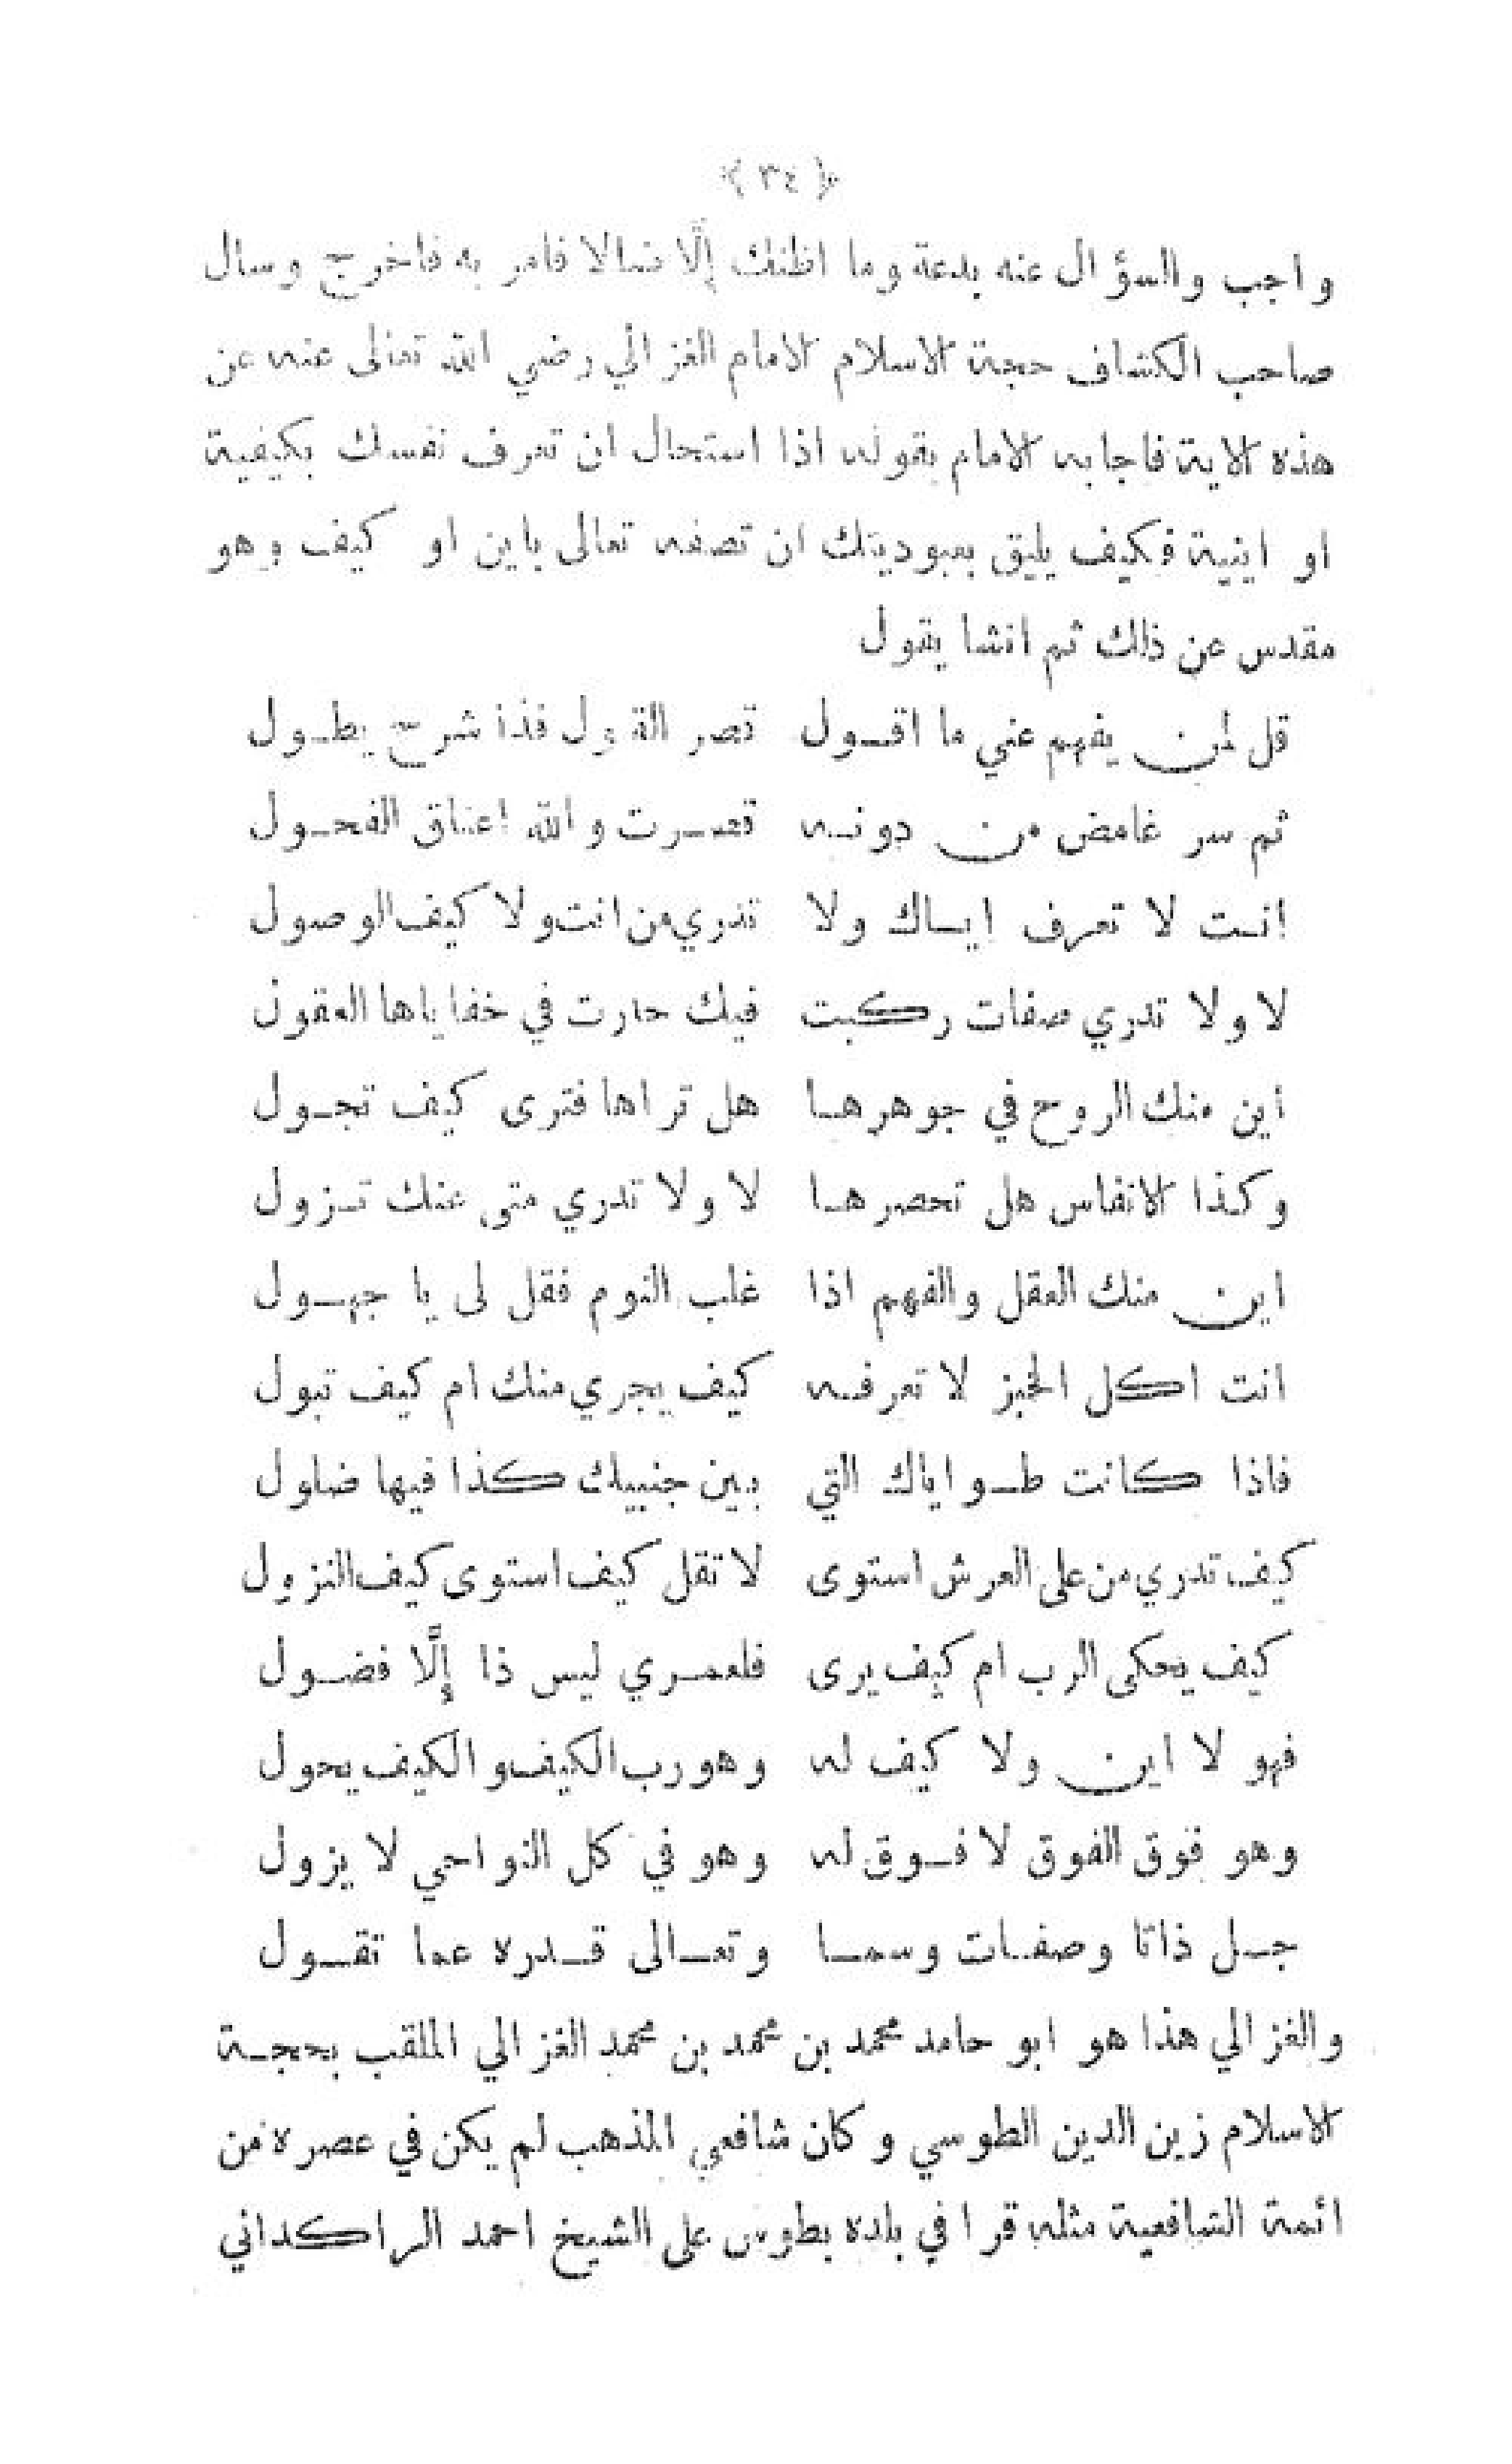 ﴿ ٣٤ ﴾
واجب والسؤال عنه بدعة وما اظنك إلَّا ضالا فامر به فاخرج وسال
صاحب الكشاف حجة الاسلام الامام الغزالي رضي الله تعالى عنه عن
هذه الاية فاجابه الامام بقوله اذا استحال ان تعرف نفسك بكيفية
او اينية فكيف يليق بعبوديتك ان تصفه تعالى باين او كيف وهو
مقدس عن ذلك ثم انشا يقول
قل لمن يفهم عني ما اقول قصر القول فذا شرح يطول
ثم سر غامض من دونه قصرت والله اعناق الفحول
انت لا تعرف اياك ولا تدري من انت ولا كيف الوصول
لا ولا تدري صفات ركبت فيك حارت في خفاياها العقول
أين منك الروح في جوهرها هل تراها فترى كيف تجول
وكذا الانفاس هل تحصرها لا ولا تدري متى عنك تزول
اين منك العقل والفهم اذا غلب النوم فقل لى يا جهول
انت اكل الخبز لا تعرفه كيف يجري منك ام كيف تبول
فاذا كانت طواياك التي بين جنبيك كذا فيها ضلول
كيف تدري من على العرش استوى لا تقل كيف استوى كيف النزول
كيف يحكى الرب ام كيف يرى فلعمري ليس ذا إلَّا فضول
فهو لا اين ولا كيف له وهو رب الكيف والكيف يحول
وهو فوق الفوق لا فوق له وهو في كل النواحي لا يزول
جل ذاتا وصفات وسما وتعالى قدره عما تقول
والغزالي هذا هو ابو حامد محمد بن محمد بن محمد الغزالي الملقب بحجة
الاسلام زين الدين الطوسي وكان شافعي المذهب لم يكن في عصره من
ائمة الشافعية مثله قرا في بلده بطوس على الشيخ احمد الراكداني